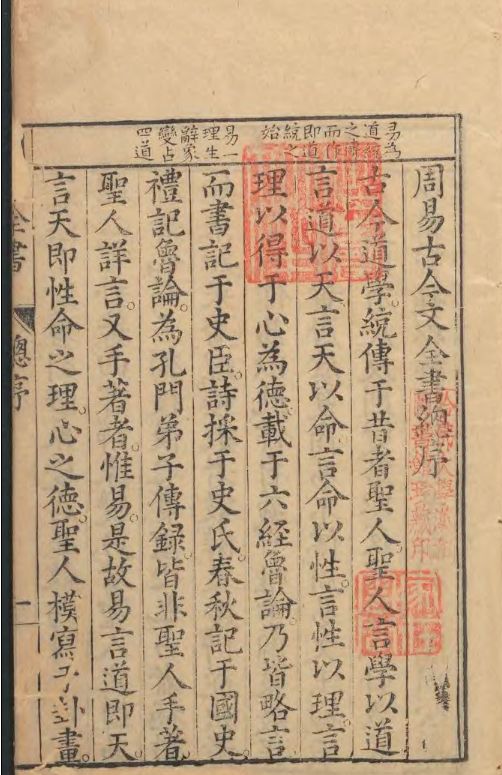 易為
道統
之
而作
即道
統之
始
易一
理生
辭象
變占
四道
周易古今文全書總序
古今道學統傳于昔者聖人。聖人言學以道
言道以天言天以命。言命以性。言性以理。言
理以得于心為德。載于六經魯論。乃皆略言
而書記于史臣。詩採于史氏。春秋記于國史。
禮記魯論。為孔門弟子傳錄。皆非聖人手著
聖人詳言。又手著者。惟易。是故易言道即天
言天即性命之理。心之德。聖人模寫于卦畫。
全書
總序
一